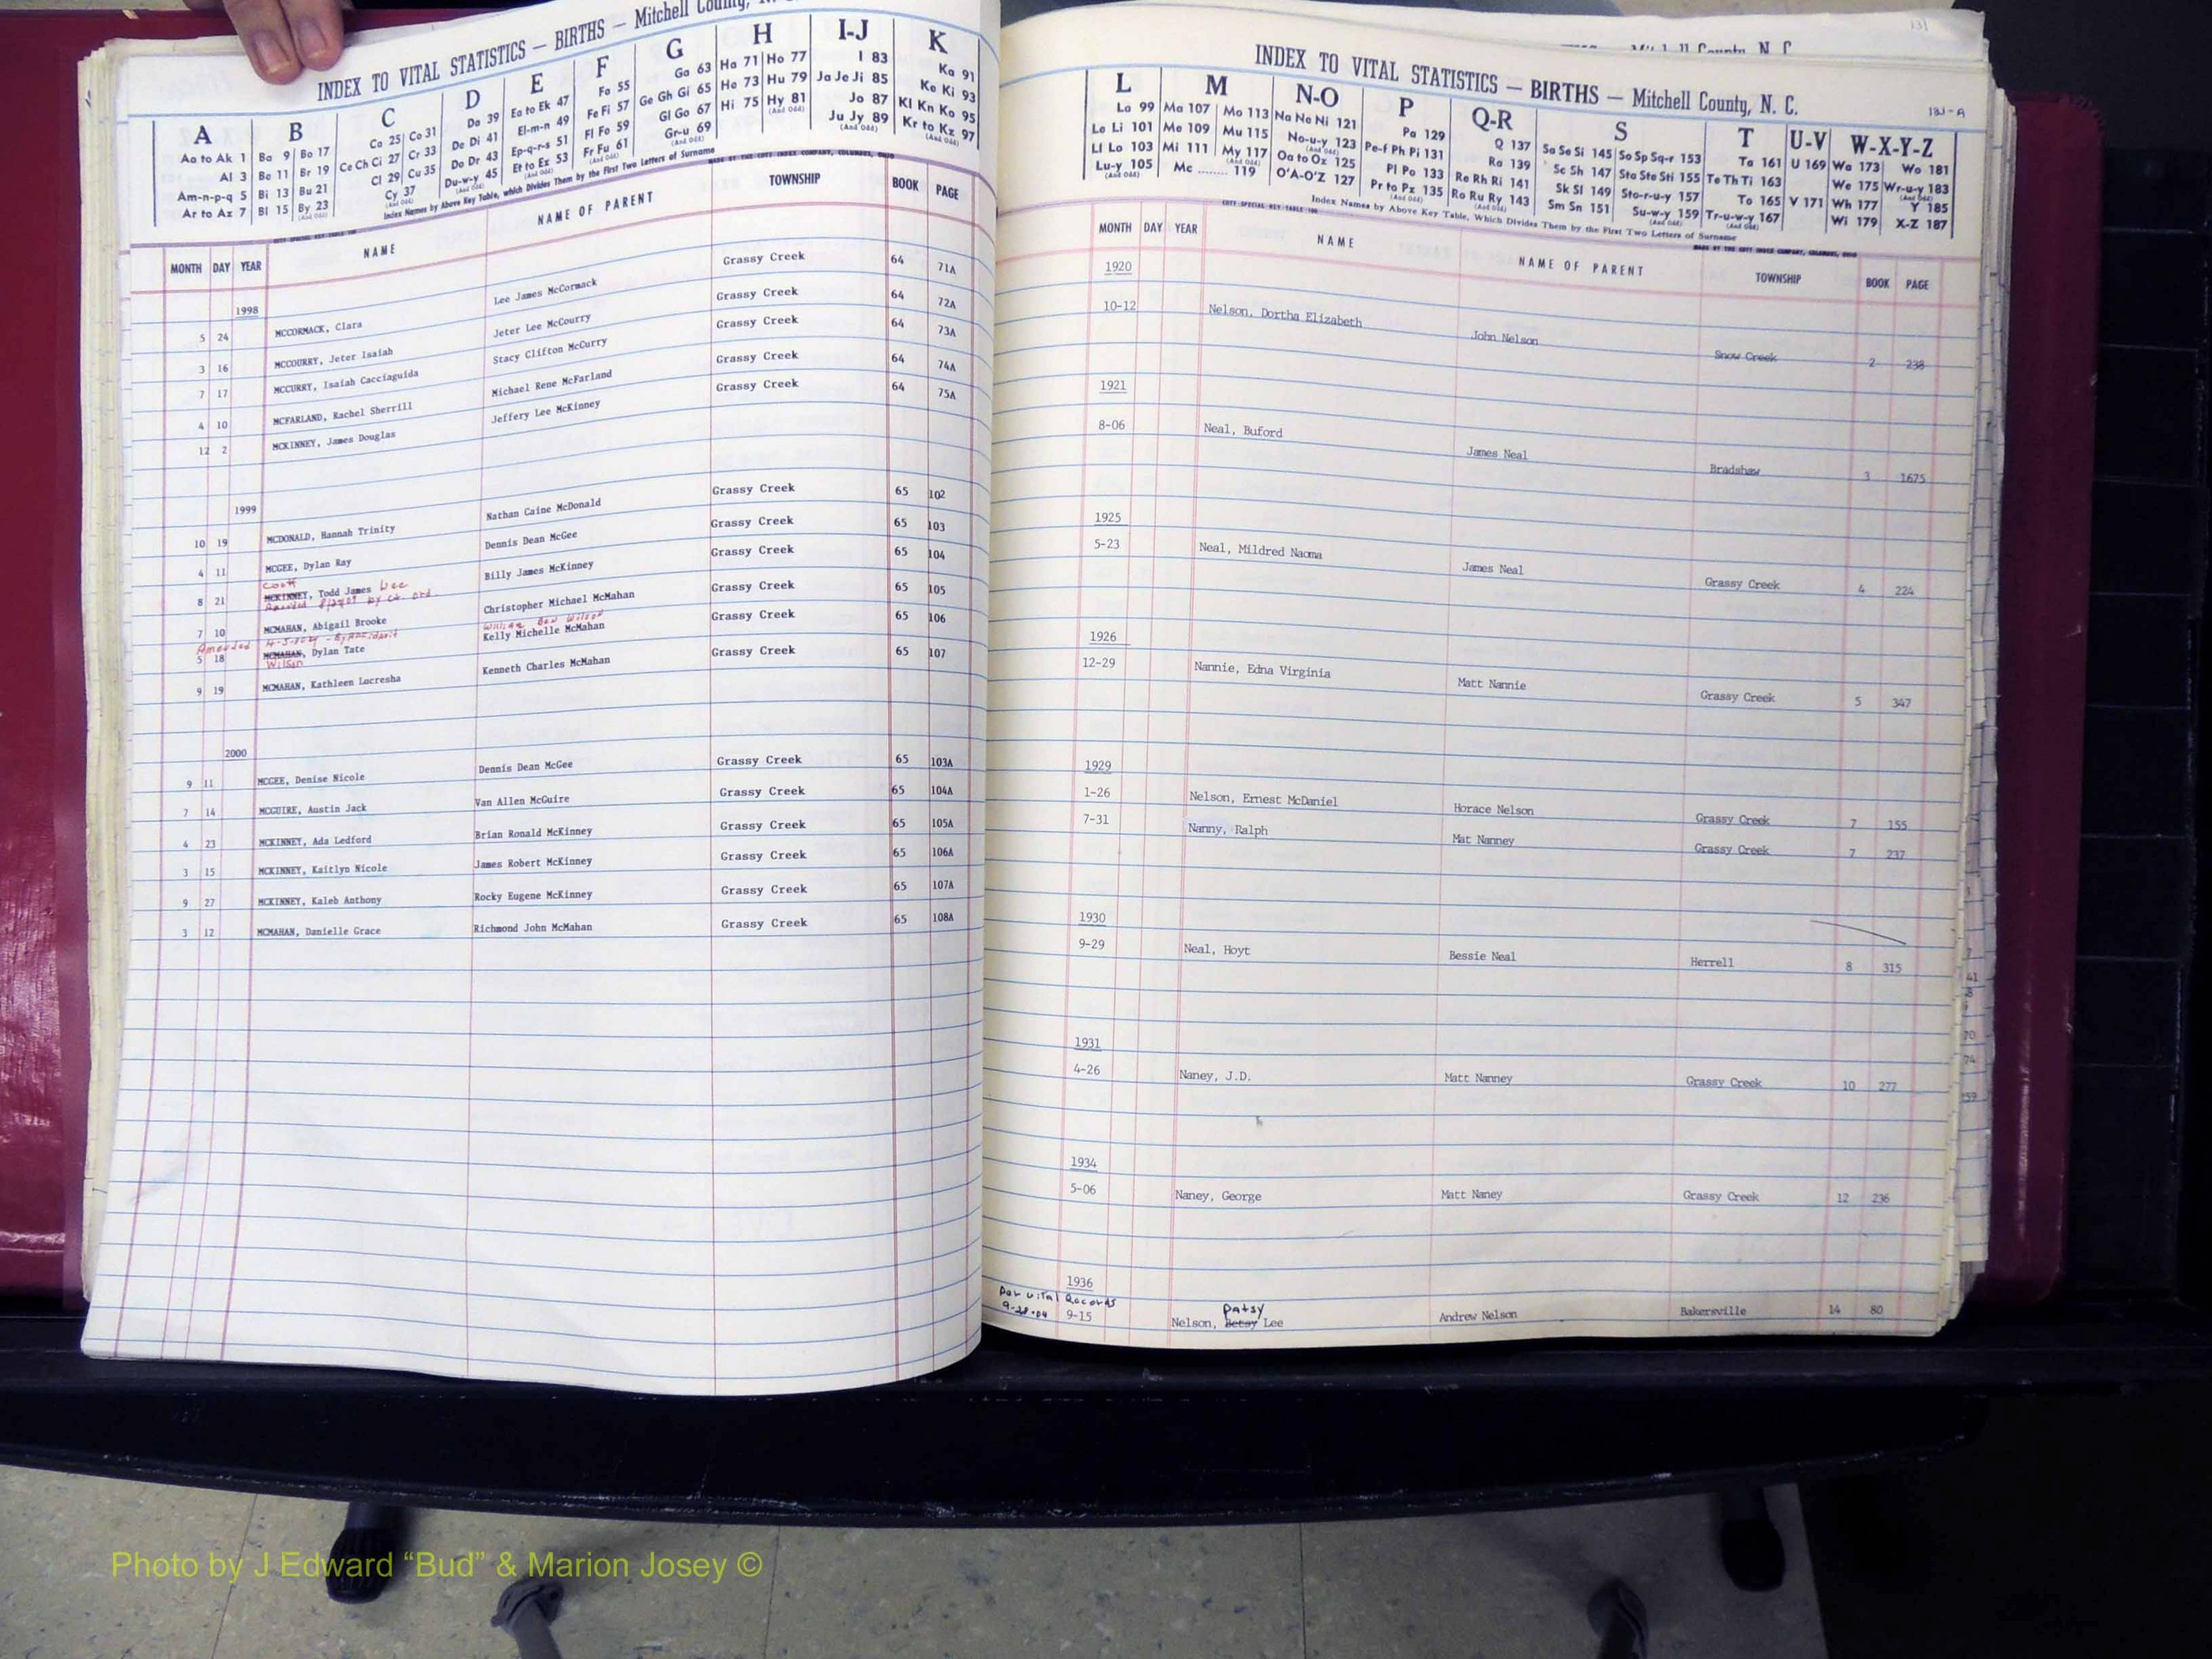 INDEX TO VITAL STATISTICS — BIRTHS — Mitchell County, N. C.
A B C D E F G H I-J K
Aa to Ak 1 Ba 9 Bo 17 Ca 25 Co 31 Da 39 Ea to Ek 47 Fa 55 Ga 63 Ha 71 Ho 77 I 83 Ka 91
Al 3 Be 11 Br 19 Ce Ch Ci 27 Cr 33 De Di 41 El-m-n 49 Fe Fi 57 Ge Gh Gi 65 He 73 Hu 79 Ja Je Ji 85 Ke Ki 93
Am-n-p-q 5 Bi 13 Bu 21 Cl 29 Cu 35 Do Dr 43 Ep-q-r-s 51 Fl Fo 59 Gl Go 67 Hi 75 Hy 81 Jo 87 Kl Kn Ko 95
Ar to Az 7 Bl 15 By 23 Cy 37 Du-w-y 45 Et to Ez 53 Fr Fu 61 Gr-u 69 Ju Jy 89 Kr to Kz 97
Index Names by Above Key Table, which Divides Them by the First Two Letters of Surname
MONTH DAY YEAR NAME NAME OF PARENT TOWNSHIP BOOK PAGE
1998
5 24 MCCORMACK, Clara Lee James McCormack Grassy Creek 64 71A
3 16 MCCOURRY, Jeter Isaiah Jeter Lee McCourry Grassy Creek 64 72A
7 17 MCCURRY, Isaiah Cacciaguida Stacy Clifton McCurry Grassy Creek 64 73A
4 10 MCFARLAND, Rachel Sherrill Michael Rene McFarland Grassy Creek 64 74A
12 2 MCKINNEY, James Douglas Jeffery Lee McKinney Grassy Creek 64 75A
1999
10 19 MCDONALD, Hannah Trinity Nathan Caine McDonald Grassy Creek 65 102
4 11 MCGEE, Dylan Ray Dennis Dean McGee Grassy Creek 65 103
8 21 MCKINNEY, Todd James Billy James McKinney Grassy Creek 65 104
7 10 MCMAHAN, Abigail Brooke Christopher Michael McMahan Grassy Creek 65 105
Amended William Ben Wilson
5 18 MCMAHAN, Dylan Tate Kelly Michelle McMahan Grassy Creek 65 106
Wilson
9 19 MCMAHAN, Kathleen Locresha Kenneth Charles McMahan Grassy Creek 65 107
2000
9 11 MCGEE, Denise Nicole Dennis Dean McGee Grassy Creek 65 103A
7 14 MCGUIRE, Austin Jack Van Allen McGuire Grassy Creek 65 104A
4 23 MCKINNEY, Ada Ledford Brian Ronald McKinney Grassy Creek 65 105A
3 15 MCKINNEY, Kaitlyn Nicole James Robert McKinney Grassy Creek 65 106A
9 27 MCKINNEY, Kaleb Anthony Rocky Eugene McKinney Grassy Creek 65 107A
3 12 MCMAHAN, Danielle Grace Richmond John McMahan Grassy Creek 65 108A
131
Mitchell County, N. C.
INDEX TO VITAL STATISTICS — BIRTHS — Mitchell County, N. C.
L M N-O P Q-R S T U-V W-X-Y-Z
La 99 Ma 107 Mo 113 Na Ne Ni 121 Pa 129 Q 137 Sa Se Si 145 So Sp Sq-r 153 Ta 161 U 169 Wa 173 Wo 181
Le Li 101 Me 109 Mu 115 No-u-y 123 Pe-f Ph Pi 131 Ra 139 Sc Sh 147 Sta Ste Sti 155 Te Th Ti 163 We 175 Wr-u-y 183
Ll Lo 103 Mi 111 My 117 Oa to Oz 125 Pl Po 133 Re Rh Ri 141 Sk Sl 149 Sto-r-u-y 157 To 165 V 171 Wh 177 Y 185
Lu-y 105 Mc ........ 119 O'A-O'Z 127 Pr to Pz 135 Ro Ru Ry 143 Sm Sn 151 Su-w-y 159 Tr-u-w-y 167 Wi 179 X-Z 187
Index Names by Above Key Table, Which Divides Them by the First Two Letters of Surname
MONTH DAY YEAR NAME NAME OF PARENT TOWNSHIP BOOK PAGE
1920
10-12 Nelson, Dortha Elizabeth John Nelson Snow Creek 2 238
1921
8-06 Neal, Buford James Neal Bradshaw 3 1675
1925
5-23 Neal, Mildred Naoma James Neal Grassy Creek 4 224
1926
12-29 Nannie, Edna Virginia Matt Nannie Grassy Creek 5 347
1929
1-26 Nelson, Ernest McDaniel Horace Nelson Grassy Creek 7 155
7-31 Nanny, Ralph Mat Nanney Grassy Creek 7 237
1930
9-29 Neal, Hoyt Bessie Neal Herrell 8 315
1931
4-26 Naney, J.D. Matt Nanney Grassy Creek 10 277
1934
5-06 Naney, George Matt Naney Grassy Creek 12 236
1936
Per Vital Records Patsy
9-28-04 9-15 Nelson, Betsy Lee Andrew Nelson Bakersville 14 80
Photo by J Edward “Bud” & Marion Josey ©